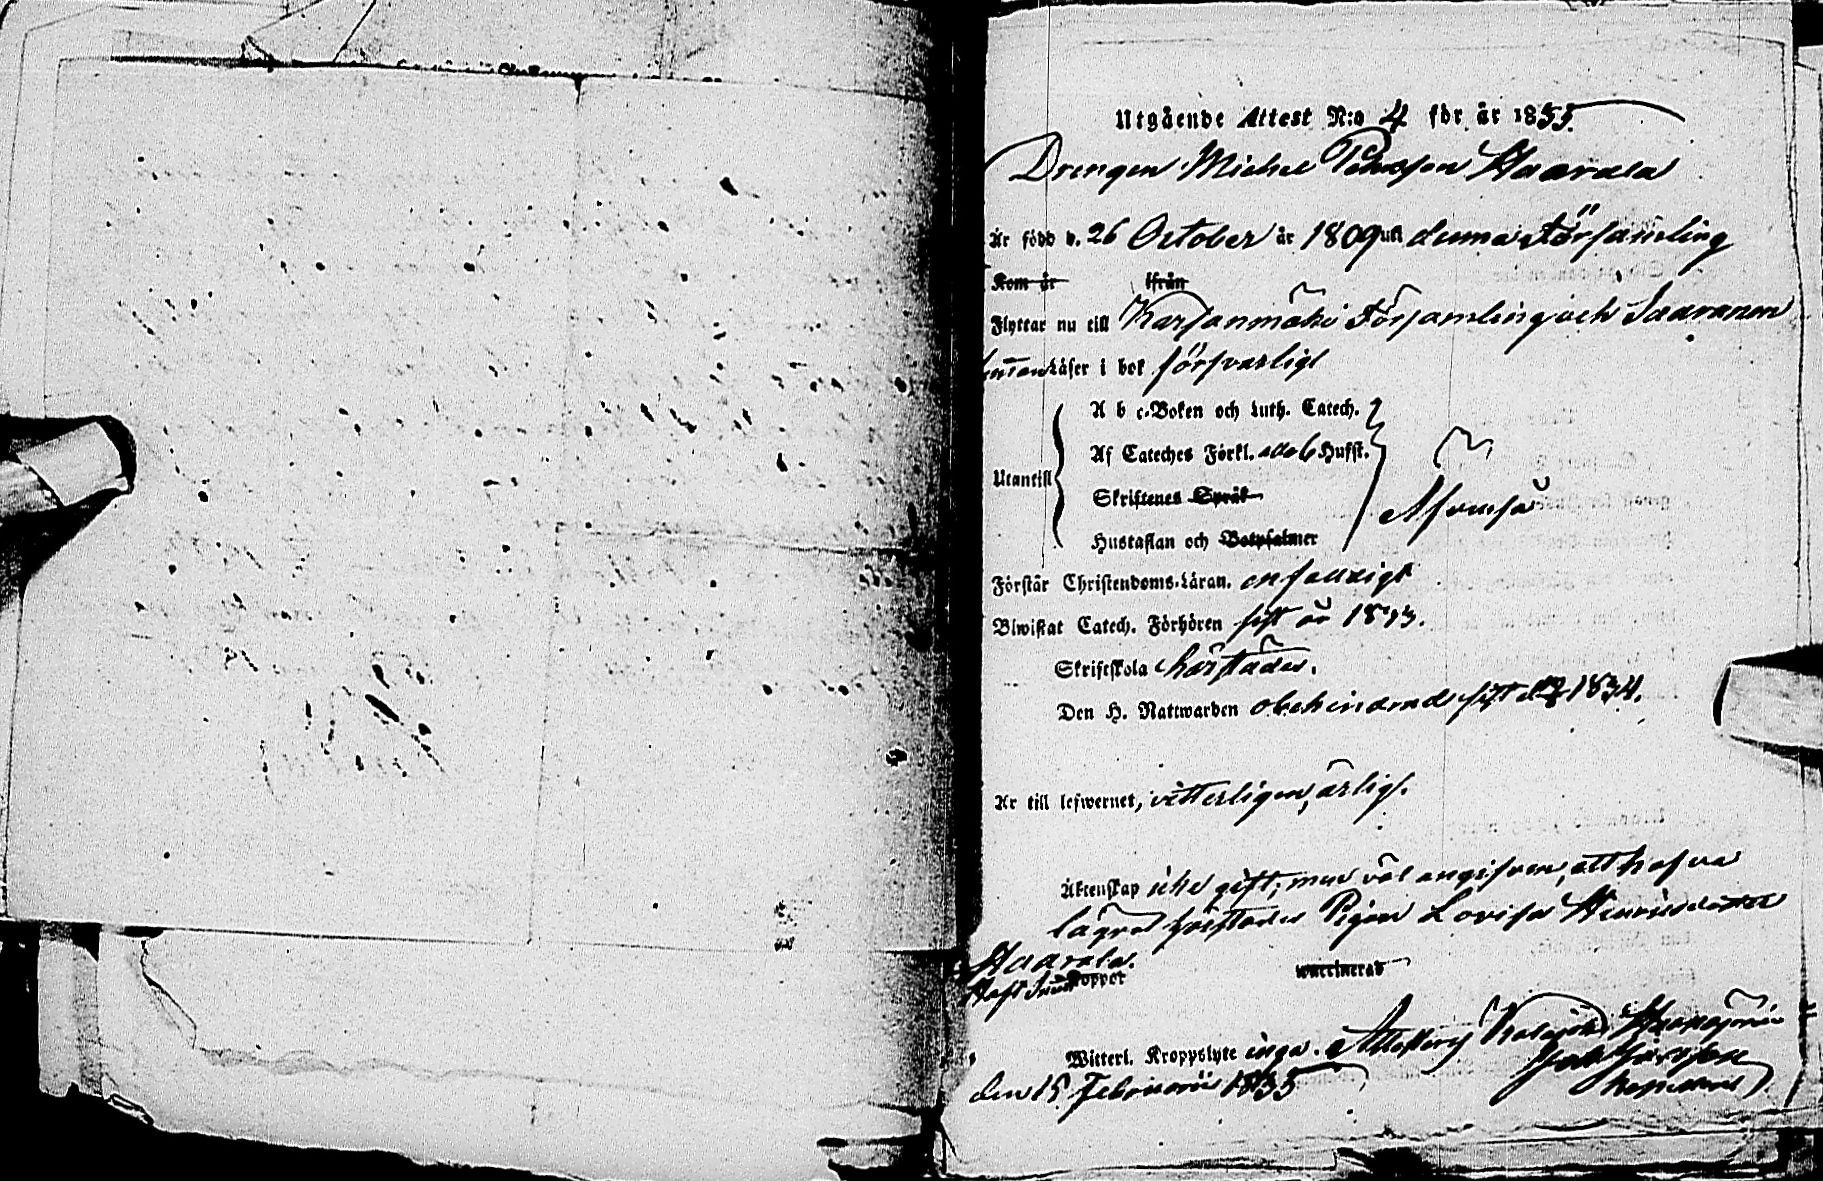 Utgående Attest N:o 4 för år 1835.
Drengen Michel Haarala
Är född d. 26 October år 1809 uti denna Församling
Kom år ifrån
Flyttar nu till Kärsämäki Församling och Saaranen
Läser i bok försvarligt
A b c-Boken och Luth. Catech.
Af Cateches Förkl. alla 6 Hufst.
Utantill
Skriftenes Språk
Hustaflan och Botpsalmer
Förstår Christendoms-Läran. enfaldigt
Biwistat Catech. Förhören sist år 1833.
Skriftskola härstädes.
Den H. Nattwarden obehindrad sist 1834.
Är till lefwernet, vitterligen, ärligt.
Äktenskap icke gift, men väl angifven, att hafva
lägrat härstädes Pigan Lovisa Henricsdotter
Haarala.
Haft koppor waccinerad
Witterl. Kroppslyte inga. Attesterar Haapajärvi
den 15 Februarii 1835